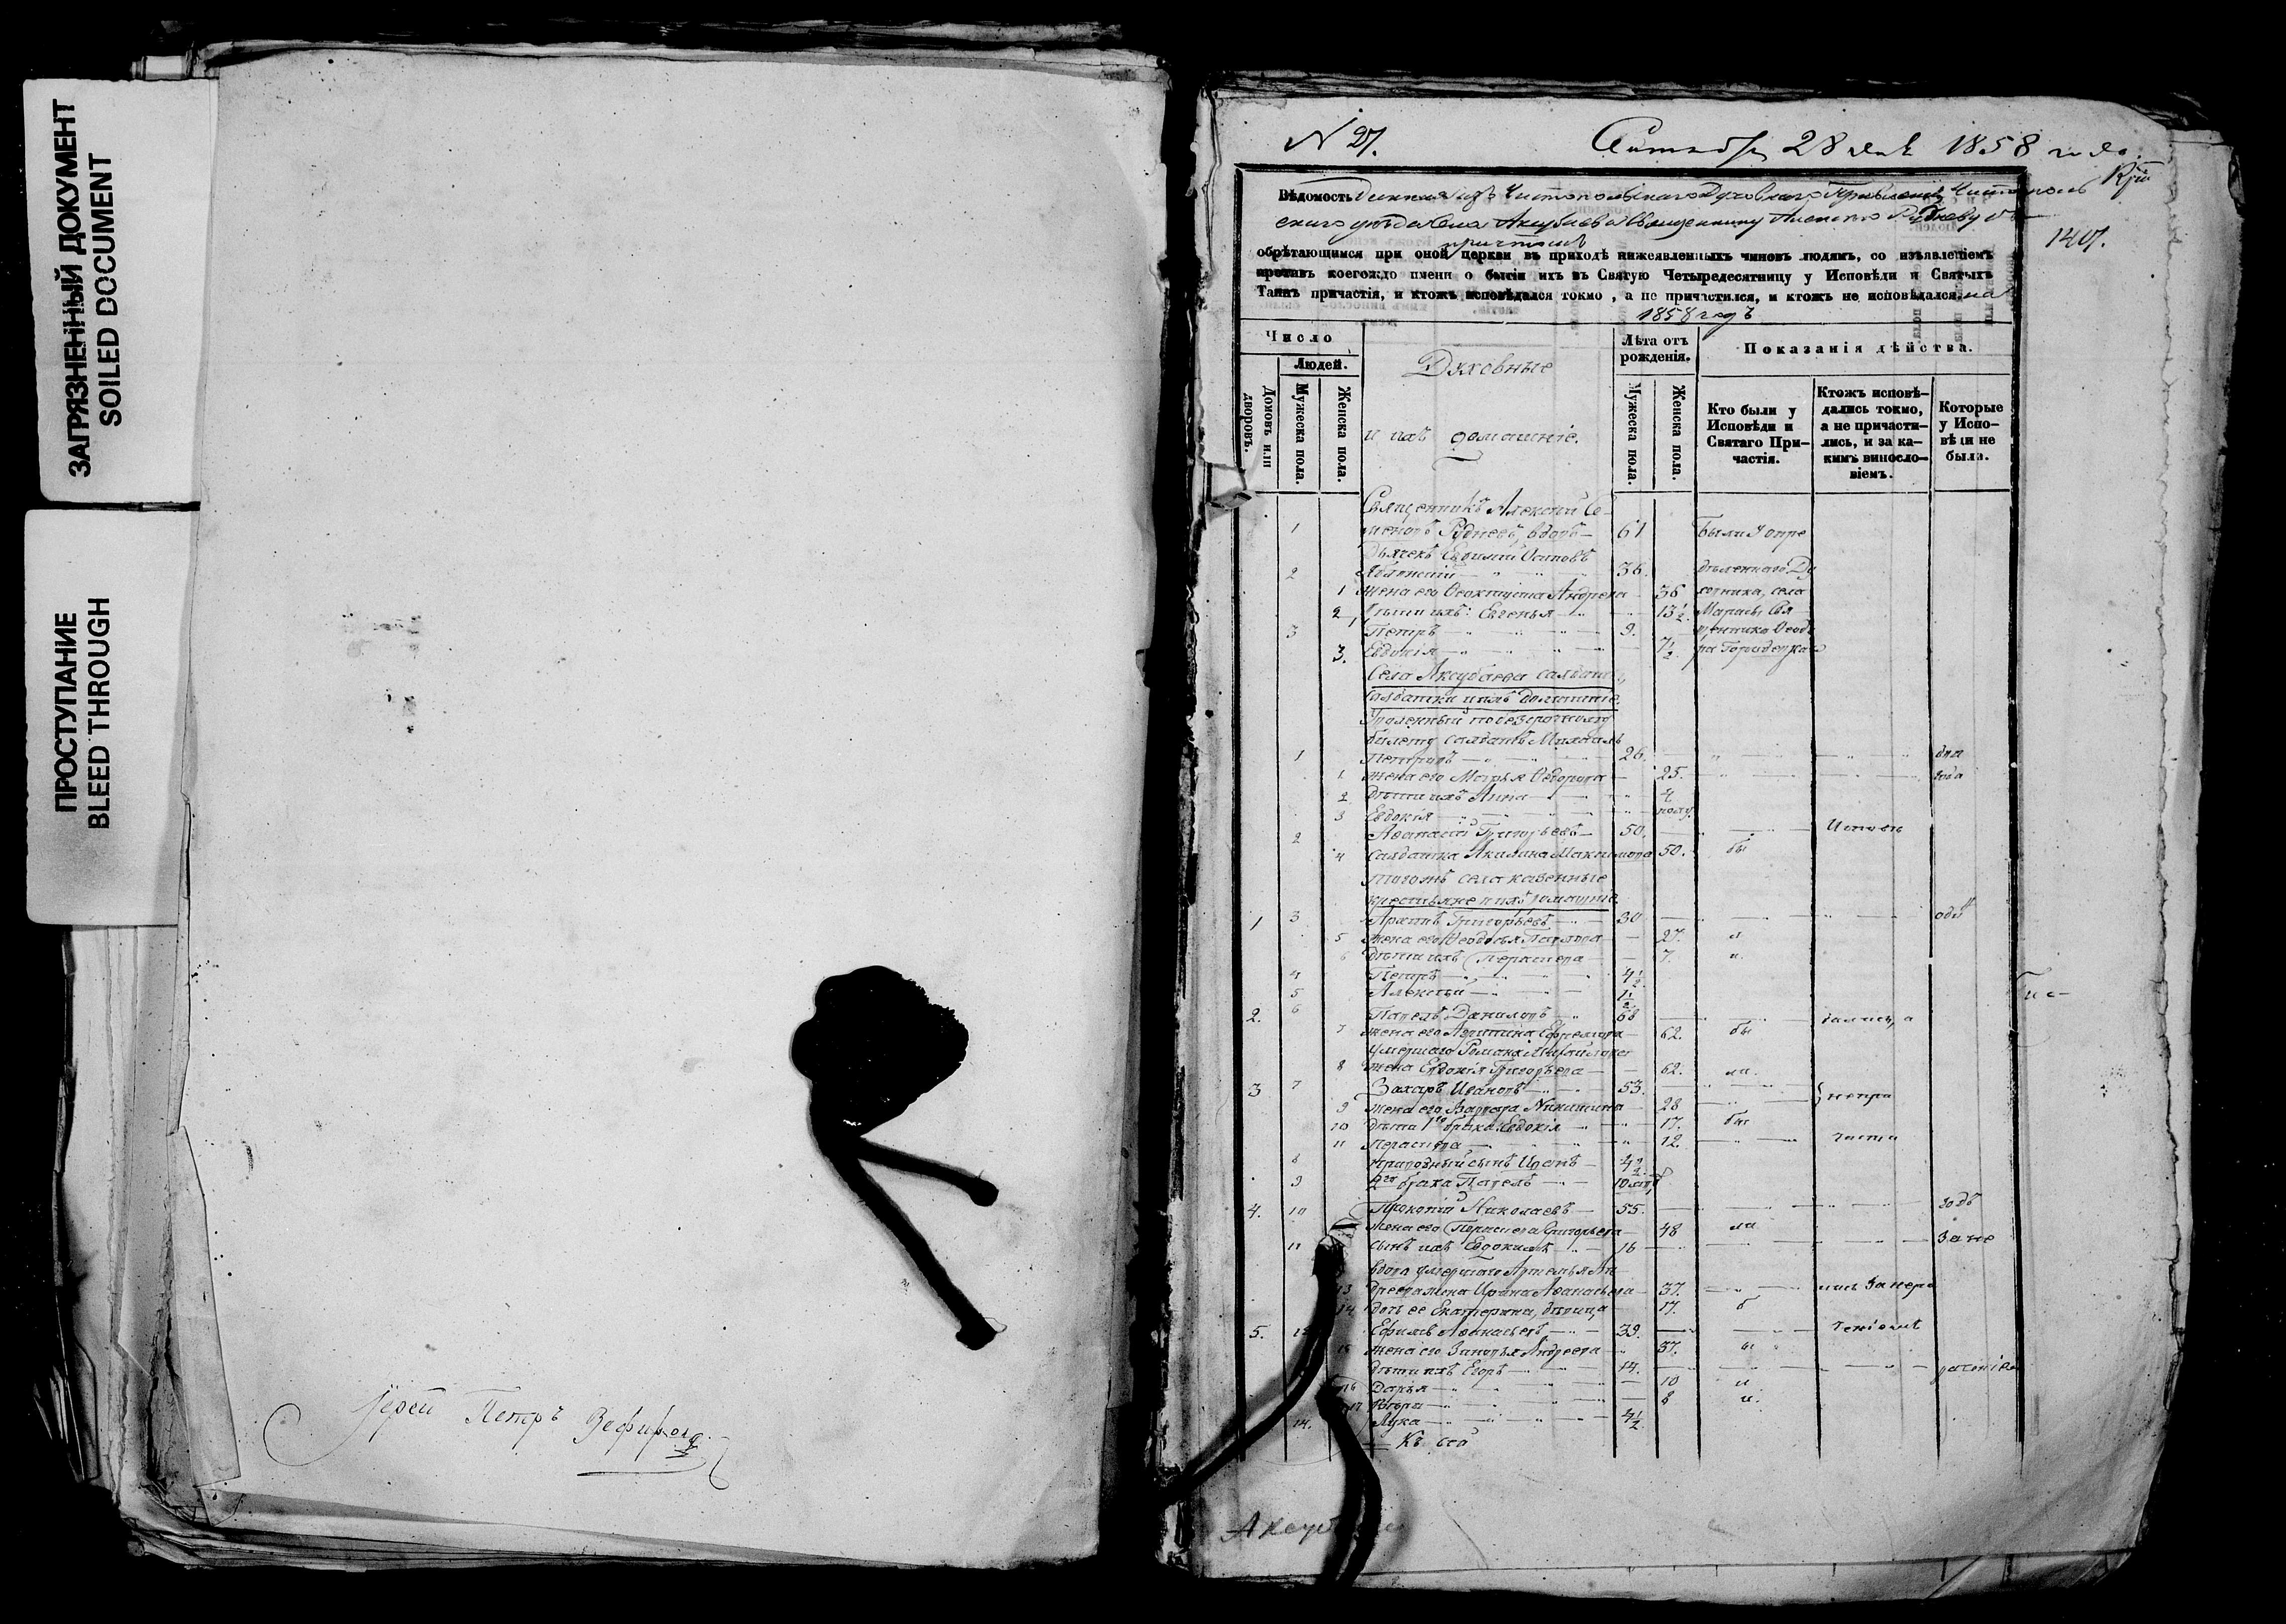 ЗАГРЯЗНЕННЫЙ ДОКУМЕНТ
SOILED DOCUMENT
ПРОСТУПАНИЕ
BLEED THROUGH
Іерей Петръ Зефировъ
N 27.
28 дня 1858 года
140.
Вѣдомость данная изъ Чистопольскаго Духовнаго Правленія Чистополь
скаго уѣзда села Аксубаева Священнику Алексію Рудневу съ
причтомъ
обрѣтающимся при оной церкви въ приходѣ нижеявленныхъ чиновъ людямъ, со изъявленіемъ
противъ коегождо имени о бытіи ихъ въ Святую Четыредесятницу у Исповѣди и Святыхъ
Таинъ причастія, и ктожъ исповѣдался токмо, а не причастился, и ктожъ не исповѣдался. на
1858 годъ
Число
Людей.
Домовъ или дворовъ.
Мужеска пола.
Женска пола.
Духовные
и ихъ домашніе.
Лѣта отъ рожденія.
Мужеска пола.
Женска пола.
Показанія дѣйства.
Кто были у Исповѣди и Святаго Причастія.
Ктожъ исповѣдались токмо, а не причастились, и за какимъ винословіемъ.
Которые у Исповѣди не были.
Священникъ Алексій Се-
1 меновъ Рудневъ, вдовъ 61 Были у опре
Дьячекъ Евфимій Осиповъ
2 36. дѣленнаго Ду
1 жена его Феоктиста Андреева 36 ховника, села
2 дѣти ихъ: Евгенья 13½
3 Петръ 9.
3. Евдокія 7½
Села Аксубаева салдаты,
салдатки и ихъ домашніе.
Уволенный по безсрочному
билету салдатъ Михаилъ
1 Петровъ 26. два
1 жена его Марья Федорова 25. года
2 дѣти ихъ Анна 4
3 Евдокія полу.
2 Афанасій Григорьевъ 50. Исповѣ
4 Салдатка Акилина Максимова 50. бы
Тогожъ села казенные
крестьяне и ихъ домашніе
1 3 Григорьевъ 30
5 жена его Феодосья Павлова 27. л
6 дѣти ихъ Параскева 7. и.
4 Петръ 4½
5 Алексѣй 1½
2. 6 Павелъ Даниловъ 68 дались, а
7 жена его Ефремова 62. бы
умершаго Романа Михайлова
8 жена Евдокія Григорьева 62. ли.
3 7 Захаръ Ивановъ 53.
9 жена его Варвара Никитина 28 непри
10 дѣти 1го брака: Евдокія 17. бы
11 Параскева 12. части
8 сынъ Иванъ 4½
9 2го брака Павелъ
4. 10 Прокопій Николаевъ 55. годъ
жена его Параскева Григорьева 48 ли
11 сынъ ихъ Евдокимъ 16 Зане
вдова умершаго Артемья Ан
13 дреева жена Ирина Афанасьева 37. лись Занера
14 дочь ее Екатерина, дѣвица 17. б
5. 12 Ефимъ Афанасьевъ 39. ченіемъ
15 жена его Зиновья Андреева 37. ы
дѣти ихъ Егоръ 14. раченіе
16 Дарья 10 л
17 8 и.
14. Лука 4½
Аксуб